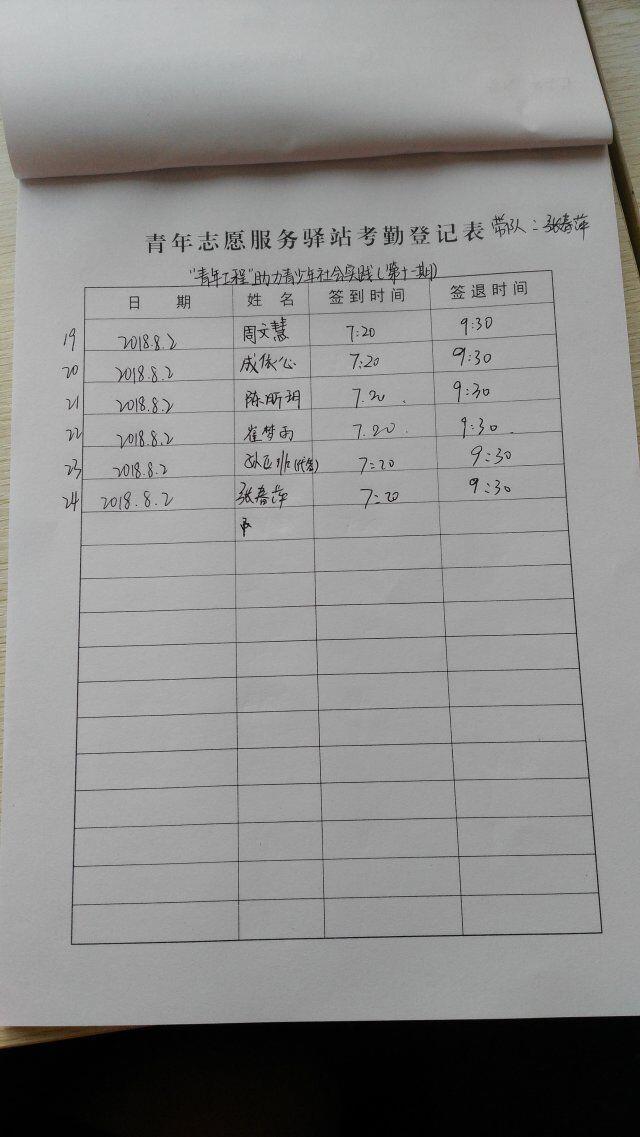 青年志愿服务驿站考勤登记表 带队：张春萍
"青年工程"助力青少年社会实践（第十一期）
日 期 姓 名 签到时间 签退时间
19 2018.8.2 周文慧 7:20 9:30
20 2018.8.2 成依心 7:20 9:30
21 2018.8.2 陈昕玥 7.20 9:30
22 2018.8.2 崔梦雨 7.20 9:30
23 2018.8.2 (代签) 7:20 9:30
24 2018.8.2 张春萍 7:20 9:30